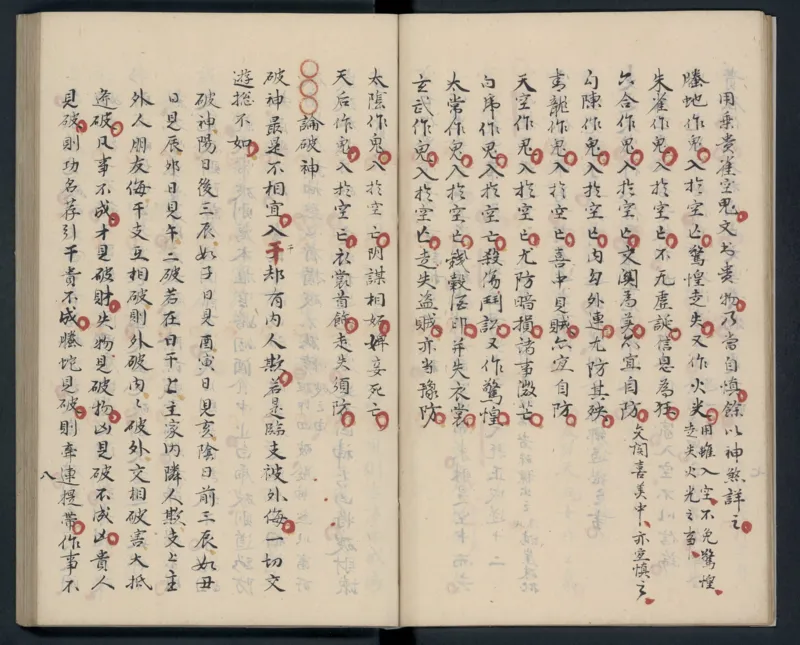 用乗貴雀空鬼文书貴物乃當自慎餘以神煞詳之
螣虵作鬼入於空亡驚惶走失又作火光用雖入空不免驚惶
走失火光之事
朱雀作鬼入於空亡不无虚詭信息為
六合作鬼入於空亡文関為美亦宜自防文関喜美中亦宜慎之
勾陳作鬼入於空亡内勾外連尤防其殃
青龍作鬼入於空亡喜中見賊亦宜自防
天空作鬼入於空亡尤防暗損諸事微芒
白虎作鬼入於空亡殺傷鬥訟又作驚惶
太常作鬼入於空亡錢穀印并失衣裳
玄武作鬼入於空亡走失盜賊亦当豫防
太陰作鬼入於空亡阴謀相妬婢妾死亡
天后作鬼入於空亡衣裳首飾走失須防
〇〇〇論破神
破神最是不相宜入干却有内人欺若是臨支被外侮一切交
遊摠不如
破神陽日後三辰如子日見酉寅日見亥陰日前三辰如丑
日見辰卯日見午二破若在日干上主家内隣人欺支上主
外人朋友侮干支互相破則外破内内破外交相破害大抵
逢破凡事不成才見破財失物見破物凶見破不成凶貴人
見破則功名荐引干貴不成螣蛇見破則牽連提帶作事不
八